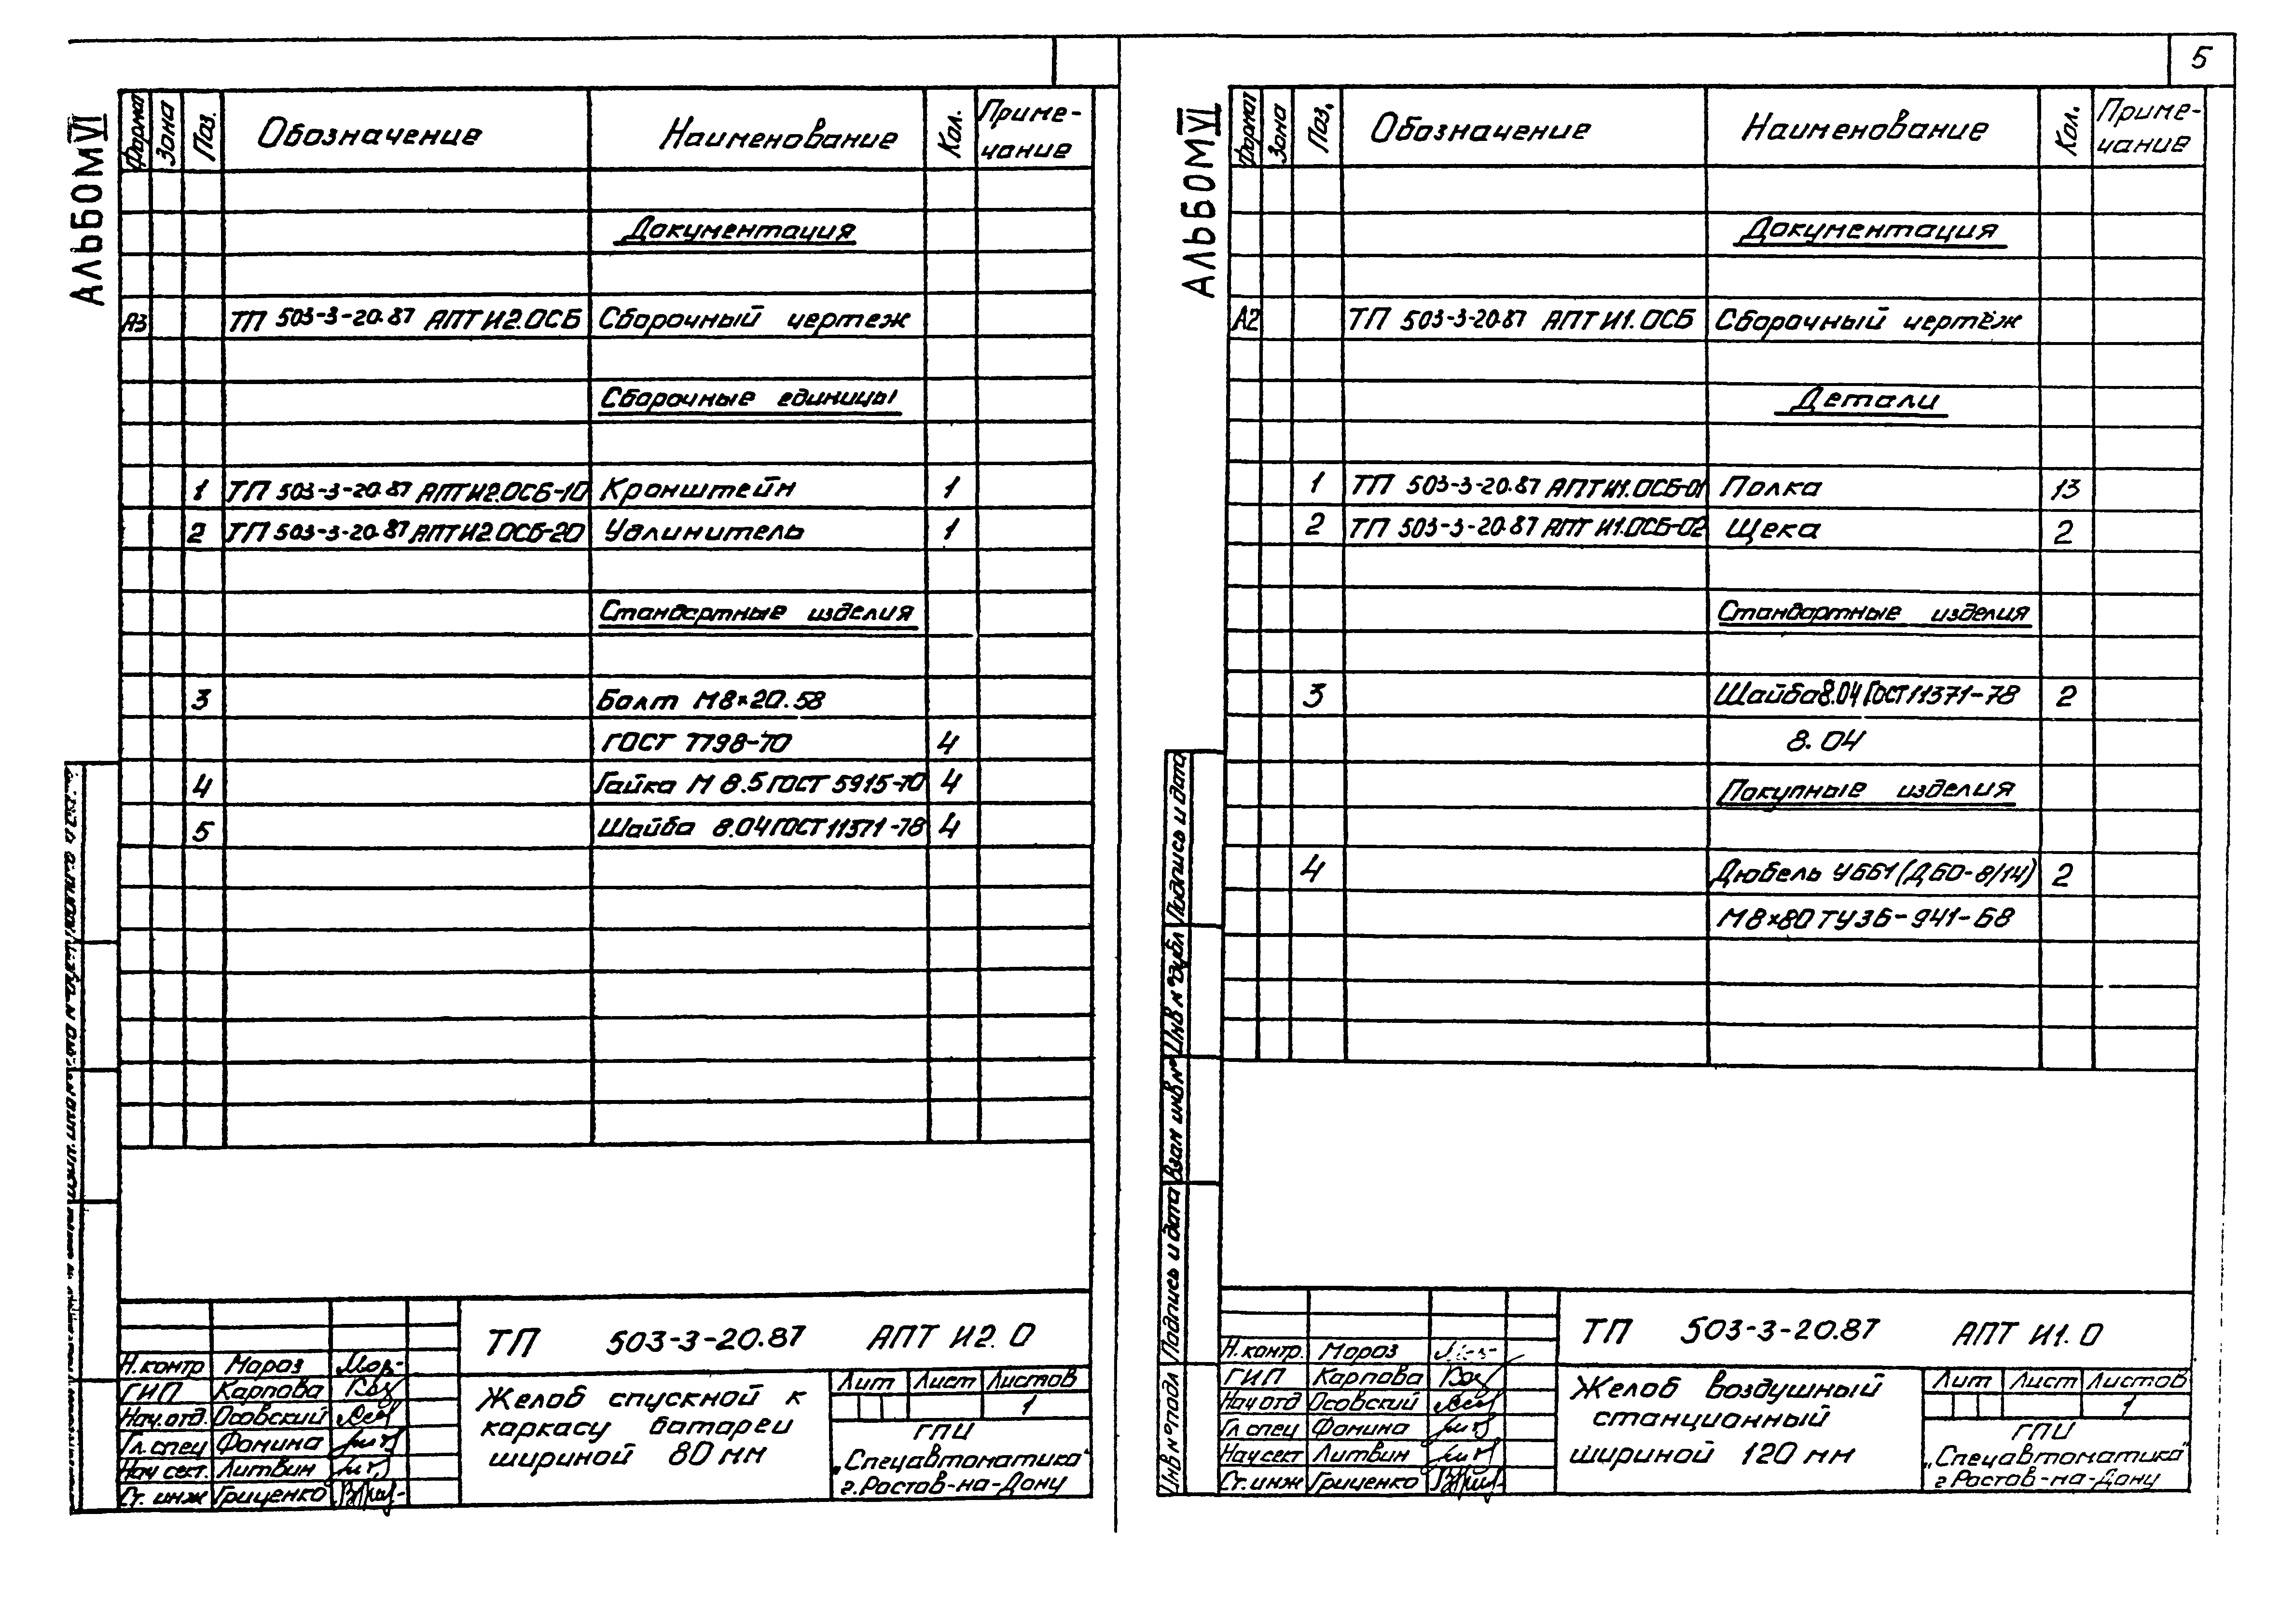 5
АЛЬБОМ VI
Формат Зона Поз. Обозначение Наименование Кол. Приме-
чание
Документация
А3 ТП 503-3-20.87 АПТ И2.ОСБ Сборочный чертеж
Сборочные единицы
1 ТП 503-3-20.87 АПТ И2.ОСБ-10 Кронштейн 1
2 ТП 503-3-20.87 АПТ И2.ОСБ-20 Удлинитель 1
Стандартные изделия
3 Болт М8×20.58
ГОСТ 7798-70 4
4 Гайка М 8.5 ГОСТ 5915-70 4
5 Шайба 8.04 ГОСТ 11371-78 4
ТП 503-3-20.87 АПТ И2. 0
Н.контр Мороз
ГИП Карпова
Нач.отд. Осовский
Гл. спец Фомина
Нач сект. Литвин
Ст. инж Гриценко
Желоб спускной к
каркасу батареи
шириной 80 мм
Лит Лист Листов
1
ГПИ
„Спецавтоматика"
г.Ростов-на-Дону
АЛЬБОМ VI
Формат Зона Поз. Обозначение Наименование Кол. Приме-
чание
Документация
А2 ТП 503-3-20.87 АПТ И1.ОСБ Сборочный чертёж
Детали
1 ТП 503-3-20.87 АПТ И1.ОСБ-01 Полка 13
2 ТП 503-3-20.87 АПТ И1.ОСБ-02 Щека 2
Стандартные изделия
3 Шайба 8.04 ГОСТ 11371-78 2
8.04
Покупные изделия
4 Дюбель У661 (Д60-8/14) 2
М8×80 ТУ36-941-68
Инв № подл Подпись и дата Взам инв № Инв № дубл Подпись и дата
ТП 503-3-20.87 АПТ И1. 0
Н.контр. Мороз
ГИП Карпова
Нач отд Осовский
Гл спец Фомина
Нач сект Литвин
Ст. инж Гриценко
Желоб воздушный
станционный
шириной 120 мм
Лит Лист Листов
1
ГПИ
„Спецавтоматика"
г Ростов-на-Дону